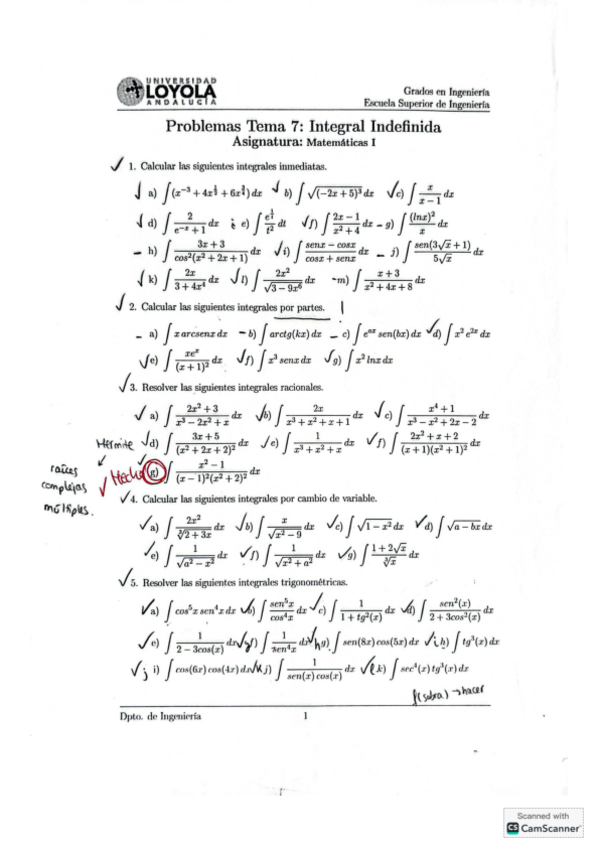 UNIVERSIDAD
LOYOLA
ANDALUCÍA
Grados en Ingeniería
Escuela Superior de Ingeniería
Problemas Tema 7: Integral Indefinida
Asignatura: Matemáticas I
✓ 1. Calcular las siguientes integrales inmediatas.
a) ∫(x⁻³ + 4x^{1/2} + 6x^{3/4}) dx b) ∫√(-2x + 5)³ dx c) ∫ x/(x - 1) dx
d) ∫ 2/(e⁻ˣ + 1) dx e) ∫ e^{1/t}/t² dt f) ∫ (2x - 1)/(x² + 4) dx g) ∫ (lnx)²/x dx
h) ∫ (3x + 3)/cos²(x² + 2x + 1) dx i) ∫ (senx - cosx)/(cosx + senx) dx j) ∫ sen(3√x + 1)/(5√x) dx
k) ∫ 2x/(3 + 4x⁴) dx l) ∫ 2x²/√(3 - 9x⁶) dx m) ∫ (x + 3)/(x² + 4x + 8) dx
✓ 2. Calcular las siguientes integrales por partes.
a) ∫ x arcsenx dx b) ∫ arctg(kx) dx c) ∫ eᵃˣ sen(bx) dx d) ∫ x² e²ˣ dx
e) ∫ xeˣ/(x + 1)² dx f) ∫ x³ senx dx g) ∫ x² lnx dx
✓ 3. Resolver las siguientes integrales racionales.
a) ∫ (2x² + 3)/(x³ - 2x² + x) dx b) ∫ 2x/(x³ + x² + x + 1) dx c) ∫ (x⁴ + 1)/(x³ - x² + 2x - 2) dx
Hermite d) ∫ (3x + 5)/(x² + 2x + 2)² dx e) ∫ 1/(x³ + x² + x) dx f) ∫ (2x² + x + 2)/((x + 1)(x² + 1)²) dx
raíces complejas múltiples. ✓ Hecho g) ∫ (x² - 1)/((x - 1)²(x² + 2)²) dx
✓ 4. Calcular las siguientes integrales por cambio de variable.
a) ∫ 2x²/∛(2 + 3x) dx b) ∫ x/√(x² - 9) dx c) ∫ √(1 - x²) dx d) ∫ √(a - bx) dx
e) ∫ 1/√(a² - x²) dx f) ∫ 1/√(x² + a²) dx g) ∫ (1 + 2√x)/∛x dx
✓ 5. Resolver las siguientes integrales trigonométricas.
a) ∫ cos⁵x sen⁴x dx b) ∫ sen⁵x/cos⁴x dx c) ∫ 1/(1 + tg²(x)) dx d) ∫ sen²(x)/(2 + 3cos²(x)) dx
e) ∫ 1/(2 - 3cos(x)) dx f) ∫ 1/sen⁴x dx g) ∫ sen(8x) cos(5x) dx h) ∫ tg³(x) dx
i) ∫ cos(6x) cos(4x) dx j) ∫ 1/(sen(x) cos(x)) dx k) ∫ sec⁴(x) tg³(x) dx
f(sobra) → hacer
Dpto. de Ingeniería 1
Scanned with
CS CamScanner